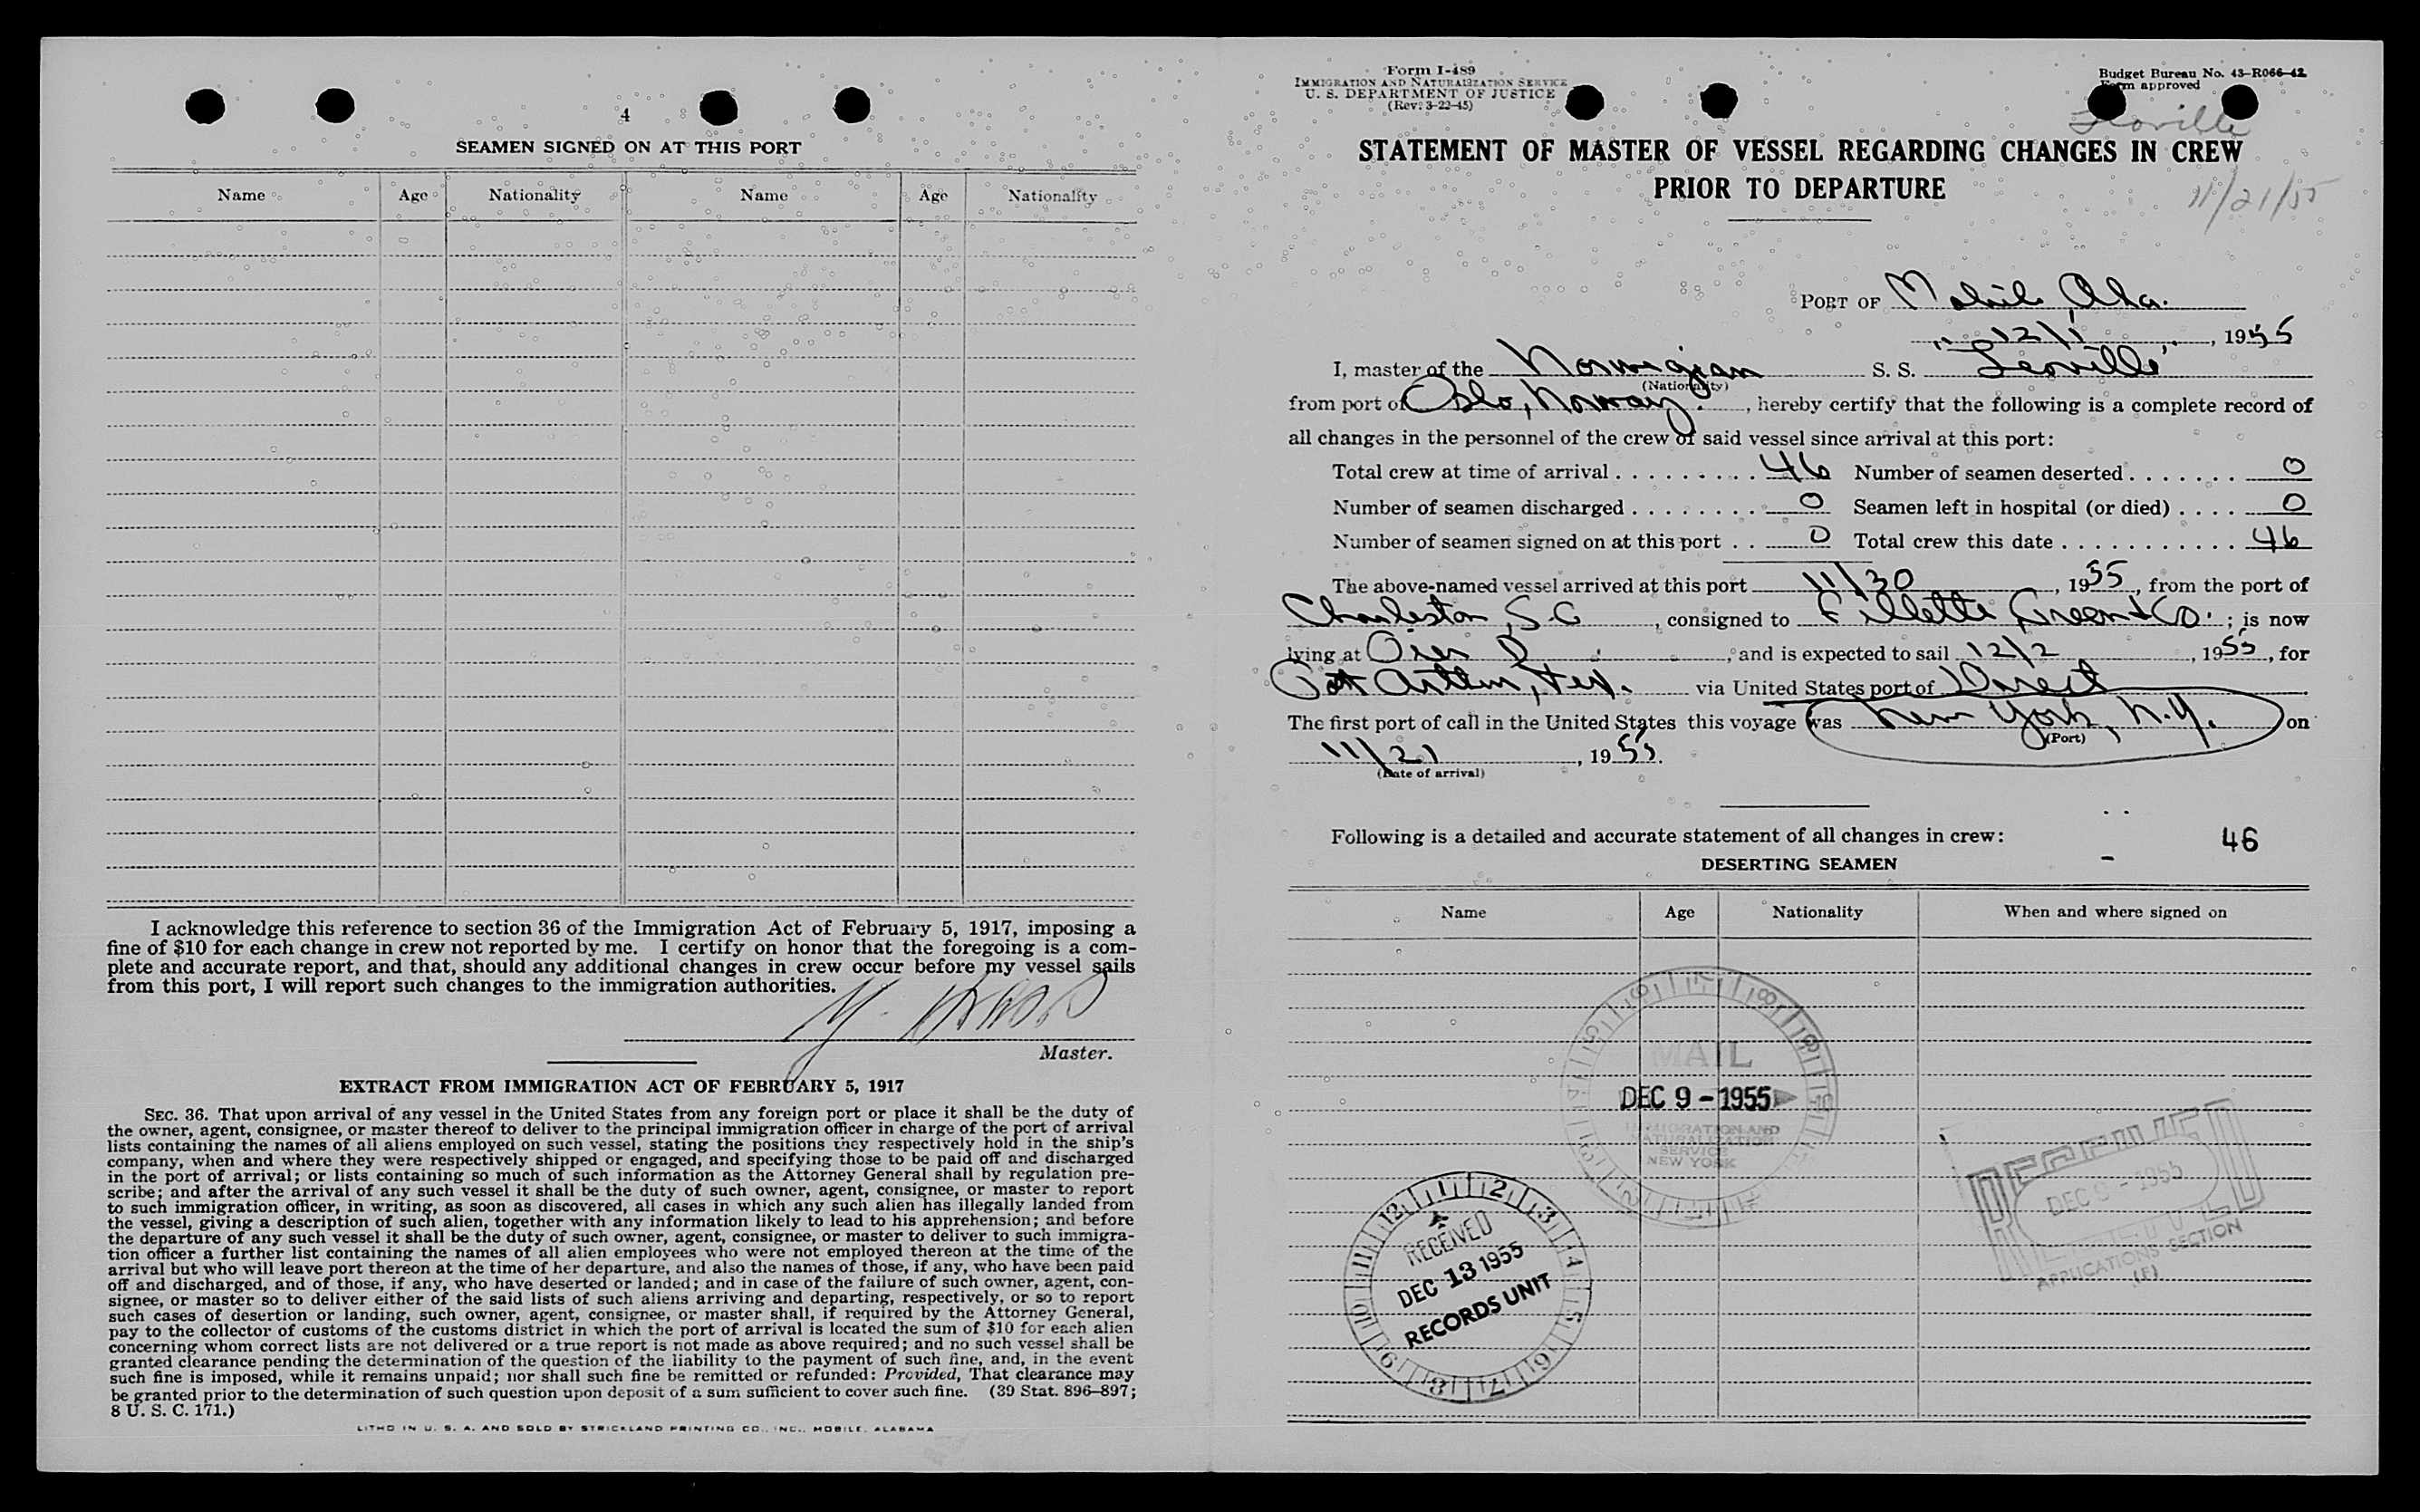 4
SEAMEN SIGNED ON AT THIS PORT
Name Age Nationality Name Age Nationality
I acknowledge this reference to section 36 of the Immigration Act of February 5, 1917, imposing a
fine of $10 for each change in crew not reported by me. I certify on honor that the foregoing is a com-
plete and accurate report, and that, should any additional changes in crew occur before my vessel sails
from this port, I will report such changes to the immigration authorities.
Master.
EXTRACT FROM IMMIGRATION ACT OF FEBRUARY 5, 1917
SEC. 36. That upon arrival of any vessel in the United States from any foreign port or place it shall be the duty of
the owner, agent, consignee, or master thereof to deliver to the principal immigration officer in charge of the port of arrival
lists containing the names of all aliens employed on such vessel, stating the positions they respectively hold in the ship's
company, when and where they were respectively shipped or engaged, and specifying those to be paid off and discharged
in the port of arrival; or lists containing so much of such information as the Attorney General shall by regulation pre-
scribe; and after the arrival of any such vessel it shall be the duty of such owner, agent, consignee, or master to report
to such immigration officer, in writing, as soon as discovered, all cases in which any such alien has illegally landed from
the vessel, giving a description of such alien, together with any information likely to lead to his apprehension; and before
the departure of any such vessel it shall be the duty of such owner, agent, consignee, or master to deliver to such immigra-
tion officer a further list containing the names of all alien employees who were not employed thereon at the time of the
arrival but who will leave port thereon at the time of her departure, and also the names of those, if any, who have been paid
off and discharged, and of those, if any, who have deserted or landed; and in case of the failure of such owner, agent, con-
signee, or master so to deliver either of the said lists of such aliens arriving and departing, respectively, or so to report
such cases of desertion or landing, such owner, agent, consignee, or master shall, if required by the Attorney General,
pay to the collector of customs of the customs district in which the port of arrival is located the sum of $10 for each alien
concerning whom correct lists are not delivered or a true report is not made as above required; and no such vessel shall be
granted clearance pending the determination of the question of the liability to the payment of such fine, and, in the event
such fine is imposed, while it remains unpaid; nor shall such fine be remitted or refunded: Provided, That clearance may
be granted prior to the determination of such question upon deposit of a sum sufficient to cover such fine. (39 Stat. 896–897;
8 U. S. C. 171.)
LITHO IN U. S. A. AND SOLD BY STRICKLAND PRINTING CO., INC., MOBILE, ALABAMA
Form I-489
IMMIGRATION AND NATURALIZATION SERVICE
U. S. DEPARTMENT OF JUSTICE
(Rev. 3-22-45)
Budget Bureau No. 43-R066-42
Form approved
Leoville
STATEMENT OF MASTER OF VESSEL REGARDING CHANGES IN CREW
PRIOR TO DEPARTURE
11/21/55
PORT OF Mobile Ala.
12/1, 1955
I, master of the Norwegian S. S. "Leoville"
(Nationality)
from port of Oslo, Norway., hereby certify that the following is a complete record of
all changes in the personnel of the crew of said vessel since arrival at this port:
Total crew at time of arrival . . . . . . . . . 46 Number of seamen deserted . . . . . . . 0
Number of seamen discharged . . . . . . . . 0 Seamen left in hospital (or died) . . . . 0
Number of seamen signed on at this port . . 0 Total crew this date . . . . . . . . . . . 46
The above-named vessel arrived at this port 11/30, 1955, from the port of
Charleston, S.C, consigned to Fillette Green & Co.; is now
lying at Pier D, and is expected to sail 12/2, 1955, for
Port Arthur, Tex. via United States port of Direct
The first port of call in the United States this voyage was New York, N.Y. on
(Port)
11/21, 1955.
(Date of arrival)
Following is a detailed and accurate statement of all changes in crew: 46
DESERTING SEAMEN
Name Age Nationality When and where signed on
MAIL
DEC 9 - 1955
IMMIGRATION AND
NATURALIZATION
SERVICE
NEW YORK
RECEIVED
DEC 9 - 1955
APPLICATIONS SECTION
(F)
12 1 2 3 4 5 6 7 8 9 10 11
RECEIVED
DEC 13 1955
RECORDS UNIT